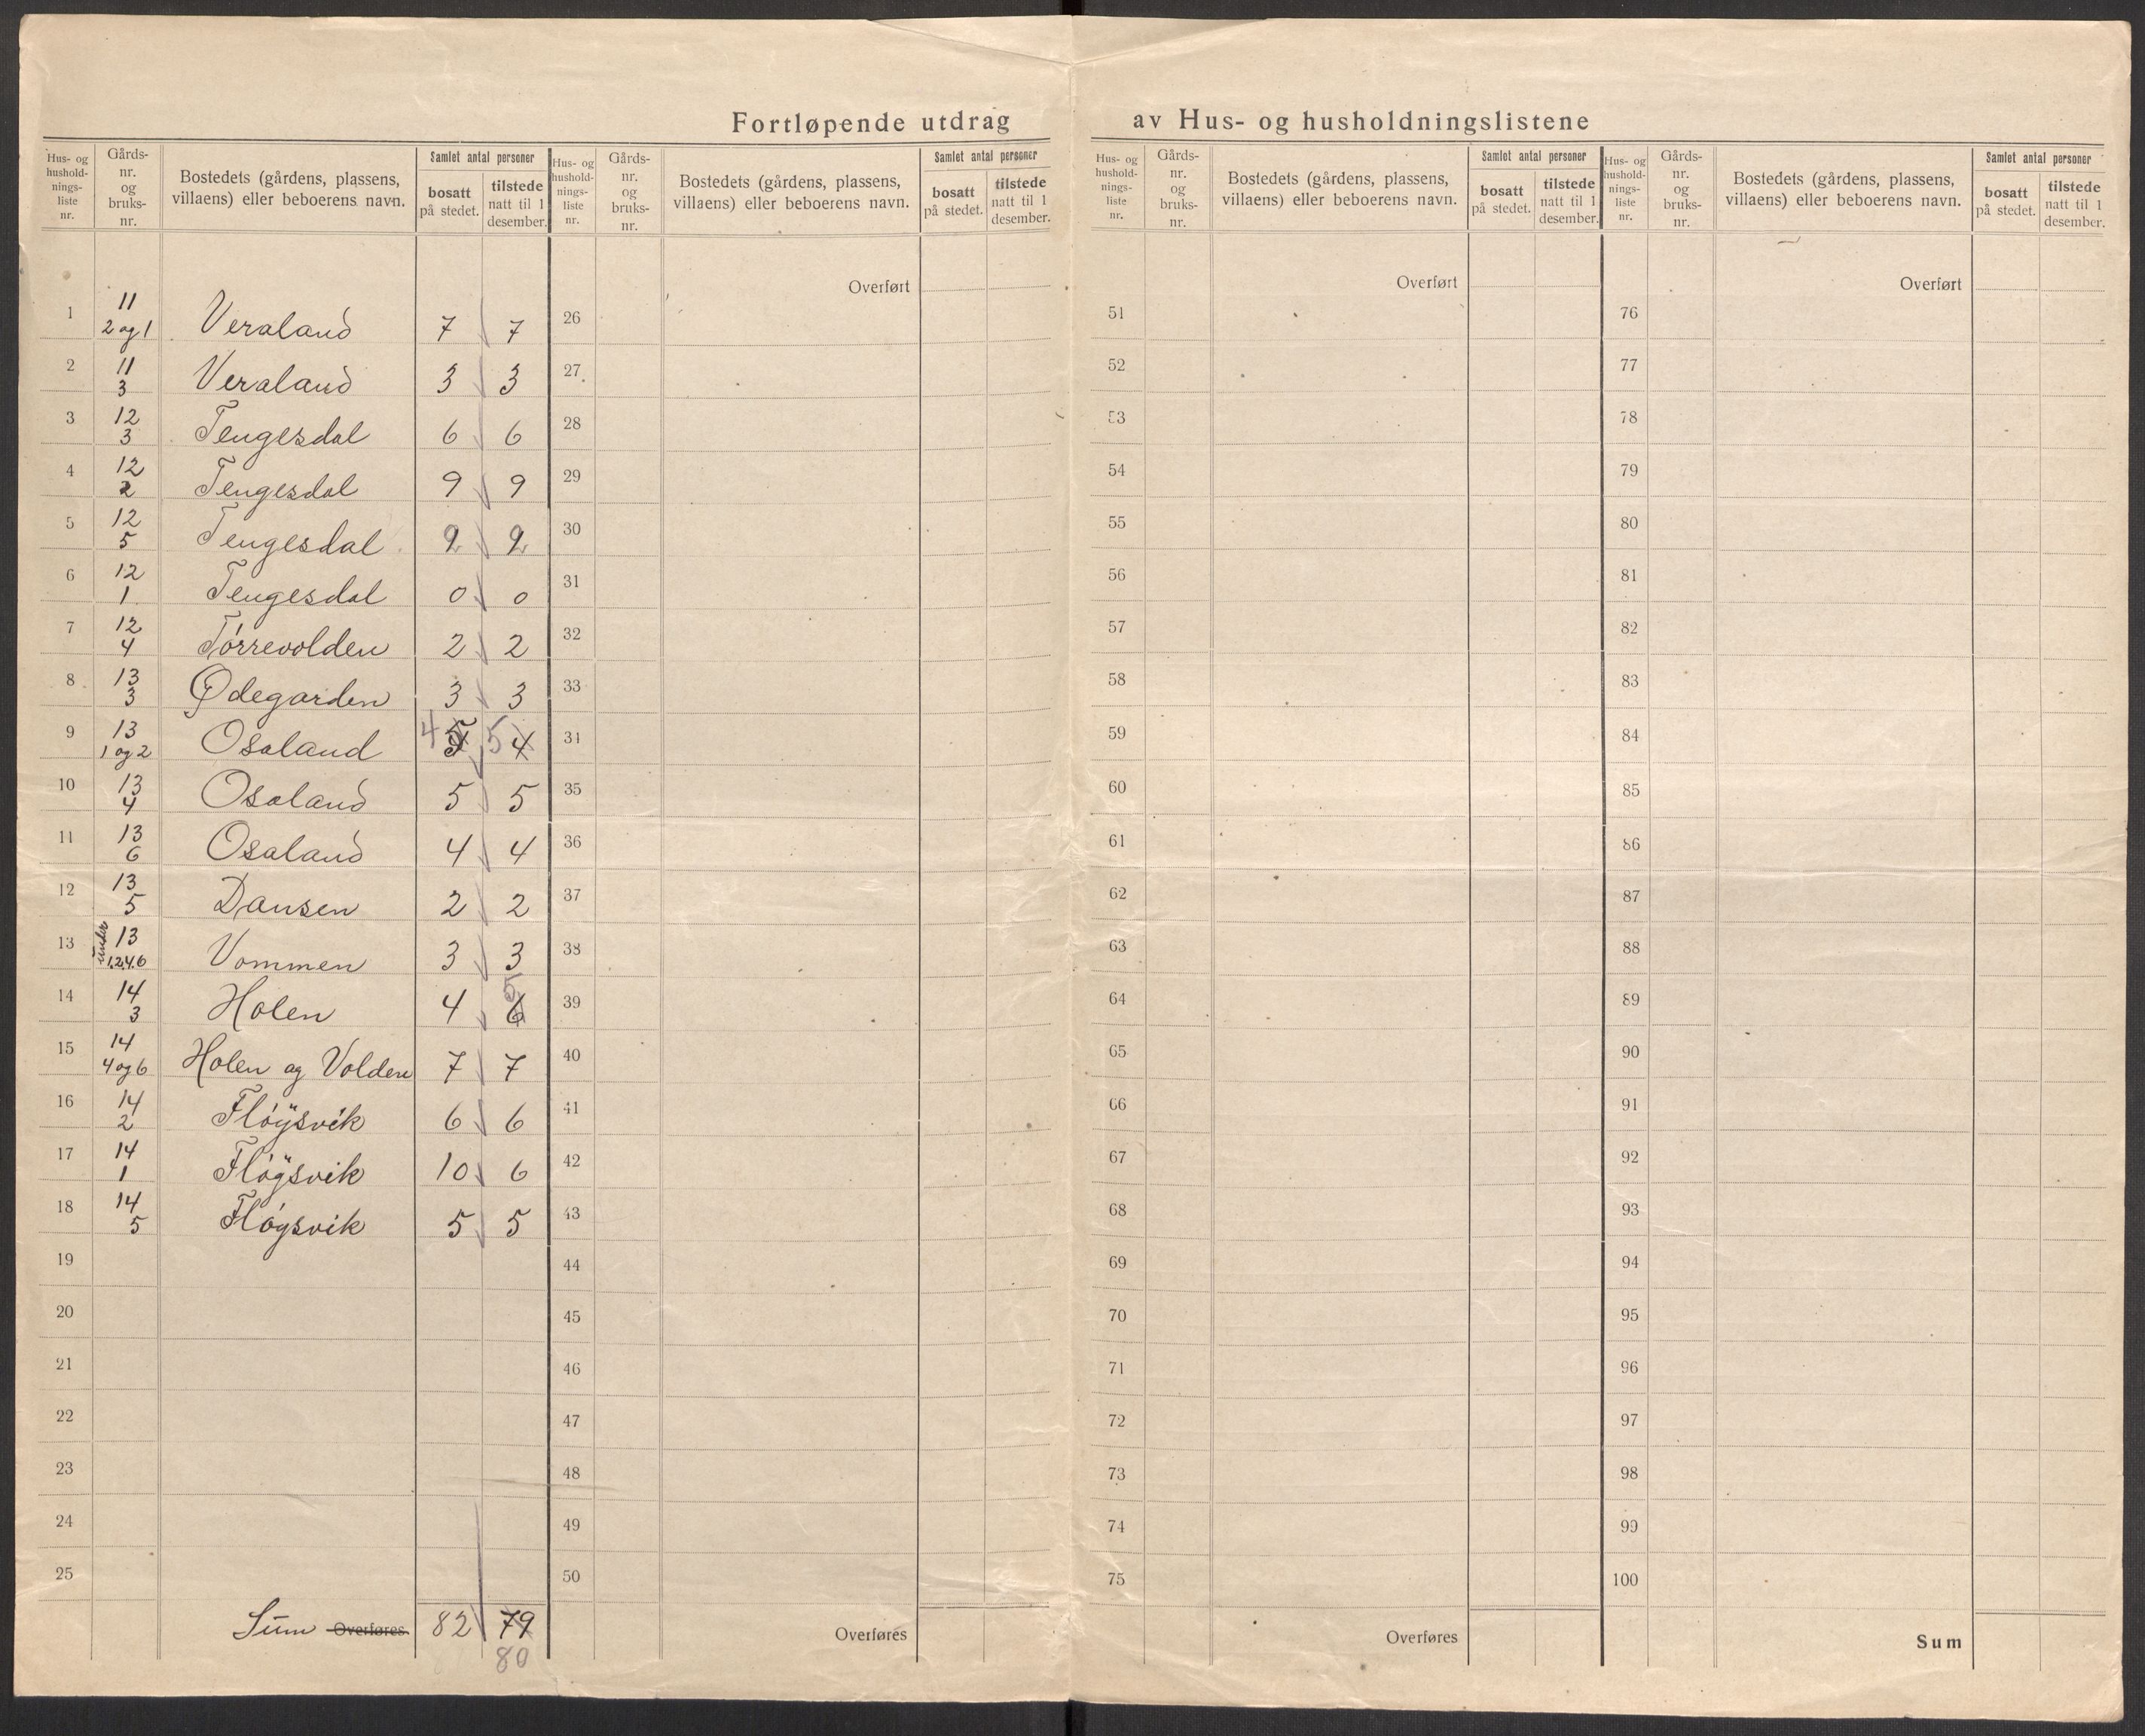 Fortløpende utdrag av Hus- og husholdningslistene
Hus- og hushold-nings-liste nr. Gårds-nr. og bruks-nr. Bostedets (gårdens, plassens, villaens) eller beboerens navn. Samlet antal personer bosatt på stedet. tilstede natt til 1 desember.
1 11 2 og 1 Veraland 7 7
2 11 3 Veraland 3 3
3 12 3 Tengesdal 6 6
4 12 2 Tengesdal 9 9
5 12 5 Tengesdal
6 12 1 Tengesdal 0 0
7 12 4 Tørrevolden 2 2
8 13 3 Ødegarden 3 3
9 13 1 og 2 Osaland 4 5 5 4
10 13 4 Osaland 5 5
11 13 6 Osaland 4 4
12 13 5 Dansen 2 2
13 under 13 1.2.4.6 Vommen 3 3
14 14 3 Holen 4 6 5
15 14 4 og 6 Holen og Volden 7 7
16 14 2 Fløysvik 6 6
17 14 1 Fløysvik 10 6
18 14 5 Fløysvik 5 5
19
20
21
22
23
24
25
Sum Overføres 82 79
80
Hus- og hushold-nings-liste nr. Gårds-nr. og bruks-nr. Bostedets (gårdens, plassens, villaens) eller beboerens navn. Samlet antal personer bosatt på stedet. tilstede natt til 1 desember.
Overført
26
27
28
29
30
31
32
33
34
35
36
37
38
39
40
41
42
43
44
45
46
47
48
49
50
Overføres
Hus- og hushold-nings-liste nr. Gårds-nr. og bruks-nr. Bostedets (gårdens, plassens, villaens) eller beboerens navn. Samlet antal personer bosatt på stedet. tilstede natt til 1 desember.
Overført
51
52
53
54
55
56
57
58
59
60
61
62
63
64
65
66
67
68
69
70
71
72
73
74
75
Overføres
Hus- og hushold-nings-liste nr. Gårds-nr. og bruks-nr. Bostedets (gårdens, plassens, villaens) eller beboerens navn. Samlet antal personer bosatt på stedet. tilstede natt til 1 desember.
Overført
76
77
78
79
80
81
82
83
84
85
86
87
88
89
90
91
92
93
94
95
96
97
98
99
100
Sum